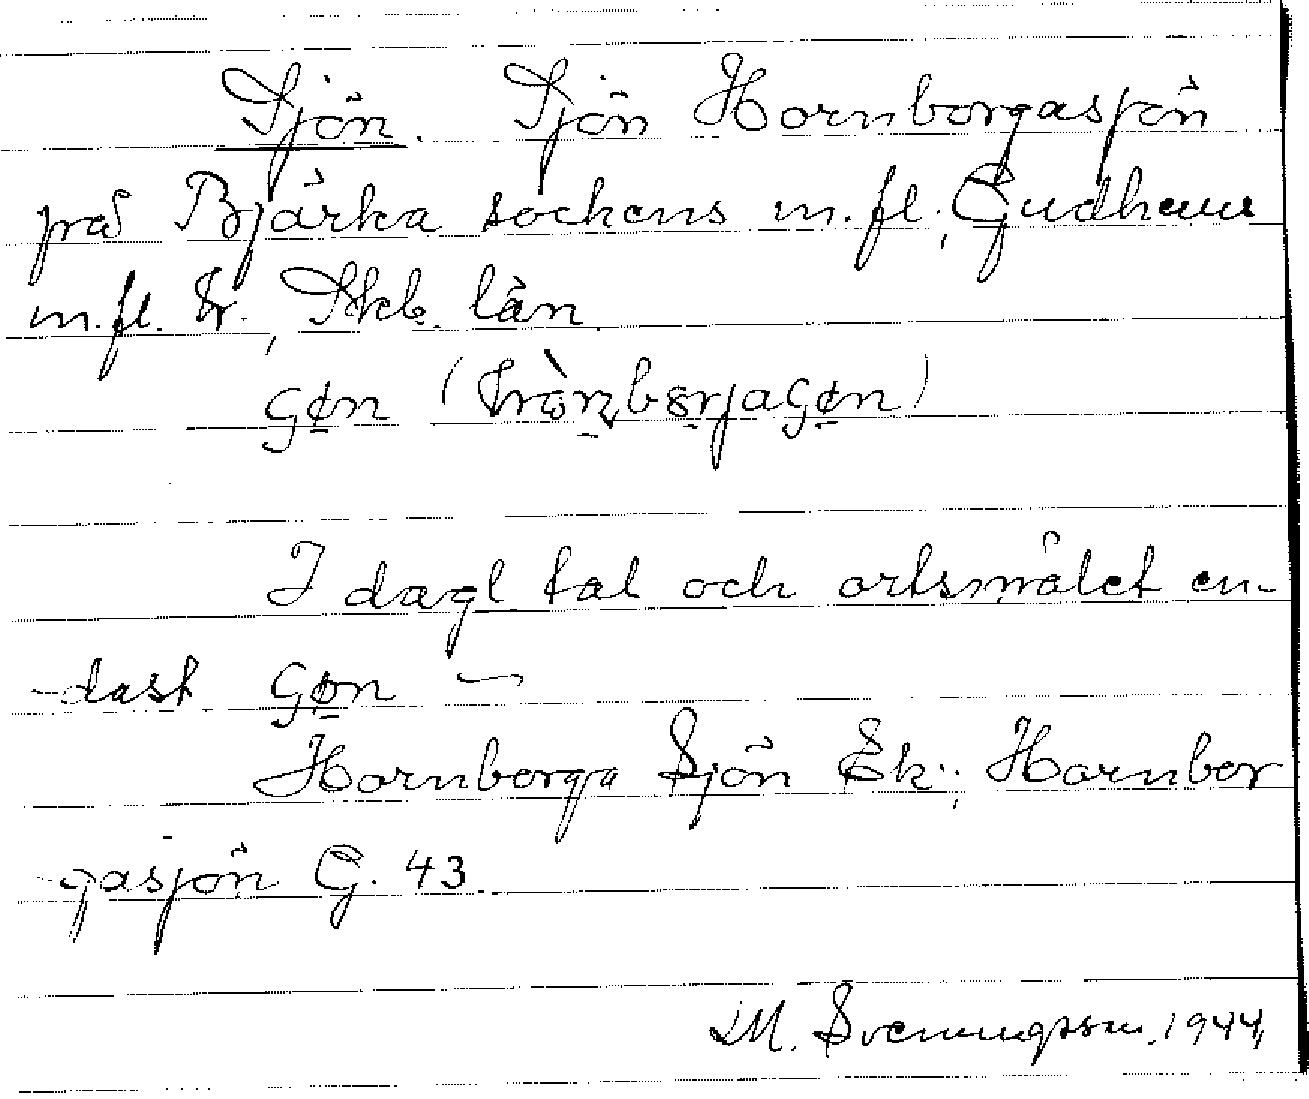 Sjön. Sjön Hornborgasjön
på Bjärka sockens m.fl., Gudhems
m.fl. hr., Skb. län
Gøn (
I dagl tal och ortsmålet en-
dast Gøn –
Hornborga Sjön Ek.; Hornbor
gasjön G. 43
M. Svenningsson. 1944